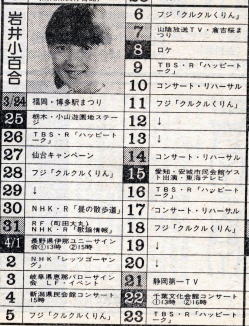 岩井小百合
3/24 福岡・博多駅まつり
25 栃木・小山遊園地ステージ
26 TBS・R「ハッピートーク」
27 仙台キャンペーン
28 フジ「クルクルくりん」
29 ↓
30 NHK・R「昼の散歩道」
31 RF「町田大丸」
NHK・R「歌謡情報」
4/1 長野県伊那ユニーサイン会①13時 ②15時
2 NHK「レッツゴーヤング」
3 岐阜県恵那バローサイン会 LF・イベント
4 新潟県民会館コンサート 15時
5 フジ「クルクルくりん」
6 フジ「クルクルくりん」
7 山陰放送TV・倉吉桜まつり
8 ロケ
9 TBS・R「ハッピートーク」
10 コンサート・リハーサル
11 フジ「クルクルくりん」
12 ↓
13 ↓
14 コンサート・リハーサル
15 愛知・安城市民会館ゲスト出演・東海テレビ
16 TBS・R「ハッピートーク」
17 コンサート・リハーサル
18 フジ「クルクルくりん」
19 ↓
20 ↓
21 静岡第一TV
22 千葉文化会館コンサート①13時 ②16時
23 TBS・R「ハッピートーク」